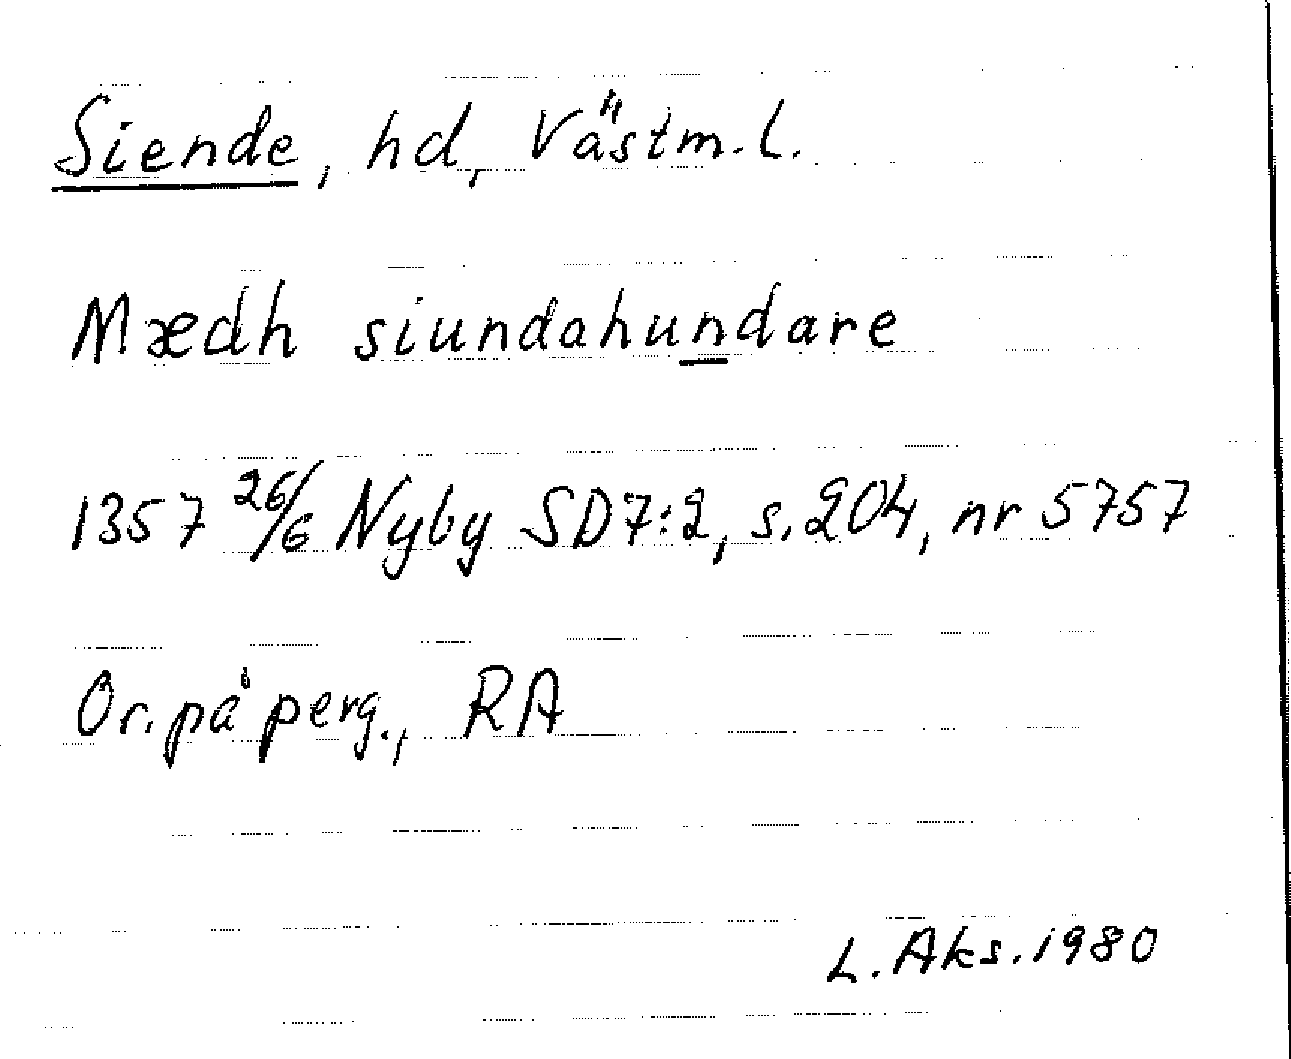 Siende, hd, Västm.l.
Mædh siundahundare
1357 26/6 Nyby SD7:2, s.204, nr 5757
Or.på perg., RA
L. Aks. 1980